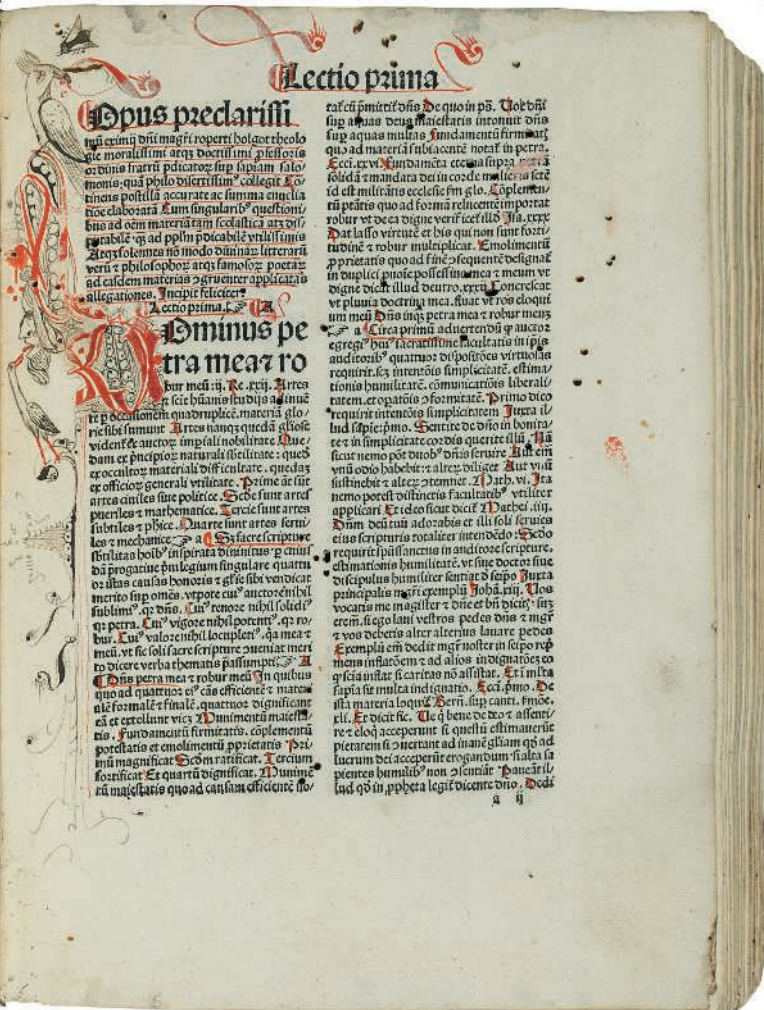 Lectio prima
Opus preclarissi
mũ eximij dñi magr̃i roperti holgot theolo
gie moralissimi atqȝ doctissimi ꝓfessoris
ordinis fratrũ p̃dicatoꝝ sup sapiam salo⸗
monis: quã philo disertissimꝰ collegit Cõ⸗
tinens postilla accurate ac summa emiclia
tioe elaborata Cum singularibꝰ questioni⸗
bus ad oẽm materiã tam scolastica atqȝ dis⸗
putabilẽ ꝙ ad pplm p̃dicabilẽ vtilissimis
Atqȝ solennes nõ modo diuinaꝝ litterarũ
verũ ⁊ philosophoꝝ atqȝ famosoꝝ poetaꝝ
ad easdem materias ꝯgruenter applicatas
allegationes. Incipit feliciter.
Lectio prima. A
Dominus pe
tra mea ⁊ ro
bur meũ: ij. Re. xxij. Artes
⁊ scie hũanis studijs adinuẽ
te ꝑ occasionem quadruplicẽ. materiã glo⸗
rie sibi sumunt Artes nanqȝ quedã gliose
vident᷑ ex auctoꝝ imꝑiali nobilitate. Que⸗
dam ex pͥncipioꝝ naturali sbtilitate: quedã
ex occultoꝝ materiali difficultate. quedaȝ
ex officioꝝ generali vtilitate. Prime aũt sũt
artes ciuiles siue politice. Scde sunt artes
pueriles ⁊ mathematice. Tercie sunt artes
subtiles ⁊ phice. Quarte sunt artes serui⸗
les ⁊ mechanice. a Sȝ sacre scripture
sbtilitas hoibꝰ inspirata diuinitus ꝓ cuius
dã progatiue p̃uilegium singulare quattu
or istas causas honoris ⁊ glie sibi vendicat
merito sup oẽs. vtpote cuiꝰ auctore nihil
sublimiꝰ. qꝛ dñs. Cuiꝰ tenore nihil solidiꝰ
qꝛ petra. Cuiꝰ vigore nihil potentiꝰ. qꝛ ro⸗
bur. Cuiꝰ valore nihil locupletiꝰ. qa mea ⁊
meũ. vt sic soli sacre scripture ꝯueniat meri
to dicere verba thematis p̃assumpti. A
Dñs petra mea ⁊ robur meũ In quibus
quo ad quattuor eiꝰ cãs efficientẽ ⁊ materi
alẽ formalẽ ⁊ finalẽ. quattuor dignificant
eã et extollunt viȝ Munimentũ maiesta⸗
tis. Fundamentũ firmitatis. cõplementũ
potestatis et emolimentũ ꝓprietatis Pri⸗
mũ magnificat Scdm ratificat. Tercium
fortificat Et quartũ dignificat. Munimẽ
tũ maiestatis quo ad causam efficientẽ no⸗
tat᷑ cũ p̃mittit᷑ dñs De quo in ps̃. Vox dñi
sup aquas deus maiestatis intonuit dñs
sup aquas multas Fundamentũ firmitatis
quo ad materiã subiacentẽ notat᷑ in petra.
Ecci. xxvi. Fundamẽta eterna supra petrã
solidã ⁊ mandata dei in corde mulieris sctẽ
id est militãtis ecclesie fm glo. Cõplemen⸗
tũ ptãtis quo ad formã relucentẽ importat
robur vt de ea digne verificet᷑ illd Isa. xxxx
Dat lasso virtutẽ et his qui non sunt forti⸗
tudinẽ ⁊ robur multiplicat. Emolimentũ
ꝓprietatis quo ad finẽ ꝯsequentẽ designat᷑
in duplici pnoie possessiuo mea ⁊ meum vt
digne dicat᷑ illud deutro. xxxij Concrescat
vt pluuia doctrina mea. fluat vt ros eloqui
um meũ Dñs inqȝ petra mea ⁊ robur meuȝ
a Circa primũ aduertendũ ꝙ auctor
egregiꝰ huiꝰ sacratissime facultatis in ip̃is
auditoribꝰ quattuor dispositões virtuosas
requirit. sȝ intentõis simplicitatẽ. estima⸗
tionis humilitatẽ. comunicatiõis liberali⸗
tatem. et oꝑatõis ꝯformitatẽ. Primo dico
requirit intentõis simplicitatem Iuxta il⸗
lud sapie: pmo. Sentite de dño in bonita⸗
te ⁊ in simplicitate cordis querite illũ. Nã
sicut nemo pot̃ duobꝰ dñis seruire Aut em
vnũ odio habebit: ⁊ alteꝝ diliget Aut vnũ
sustinebit ⁊ alteꝝ ꝯtemnet. Math. vi. Ita
nemo potest distinctis facultatibꝰ vtiliter
applicari Et ideo sicut dicit᷑ Mathei. iiij.
Dñm deũ tuũ adorabis et illi soli seruies
eius scripturis totaliter intendẽdo: Scdo
requirit spũssanctus in auditore scripture.
estimationis humilitatẽ. vt siue doctor siue
discipulus humiliter sentiat d̃ seipo Iuxta
principalis mgr̃i exemplũ Johã. xiij. Vos
vocatis me magister ⁊ dñe et bñ dicitꝭ. sum
etem̃. si ego laui vestros pedes dñs ⁊ mgr̃
⁊ vos debetis alter alterius lauare pedes
Exemplũ em̃ dedit mgr̃ noster in seipo rep̃
mens inflatõem ⁊ ad alios indignatõeȝ eo
ꝙ scia inflat si caritas nõ assistat. Et ĩ mĩta
sapia sit multa indignatio. Ecci. pmo. De
ista materia loquit᷑ Bern̄. sup canti. fmõe.
xli. Et dicit sic. Ue ꝗ bene de deo ⁊ assenti⸗
re ⁊ eloq̃ acceperunt si questũ estimauerũt
pietatem si ꝯuertant ad inanẽ gliam qd̃ ad
lucrum dei acceperũt erogandum si alta sa
pientes humilibꝰ non ꝯsentiãt Paueãt il⸗
lud qd̃ in ꝓpheta legit᷑ dicente dño. Dedi
a ij